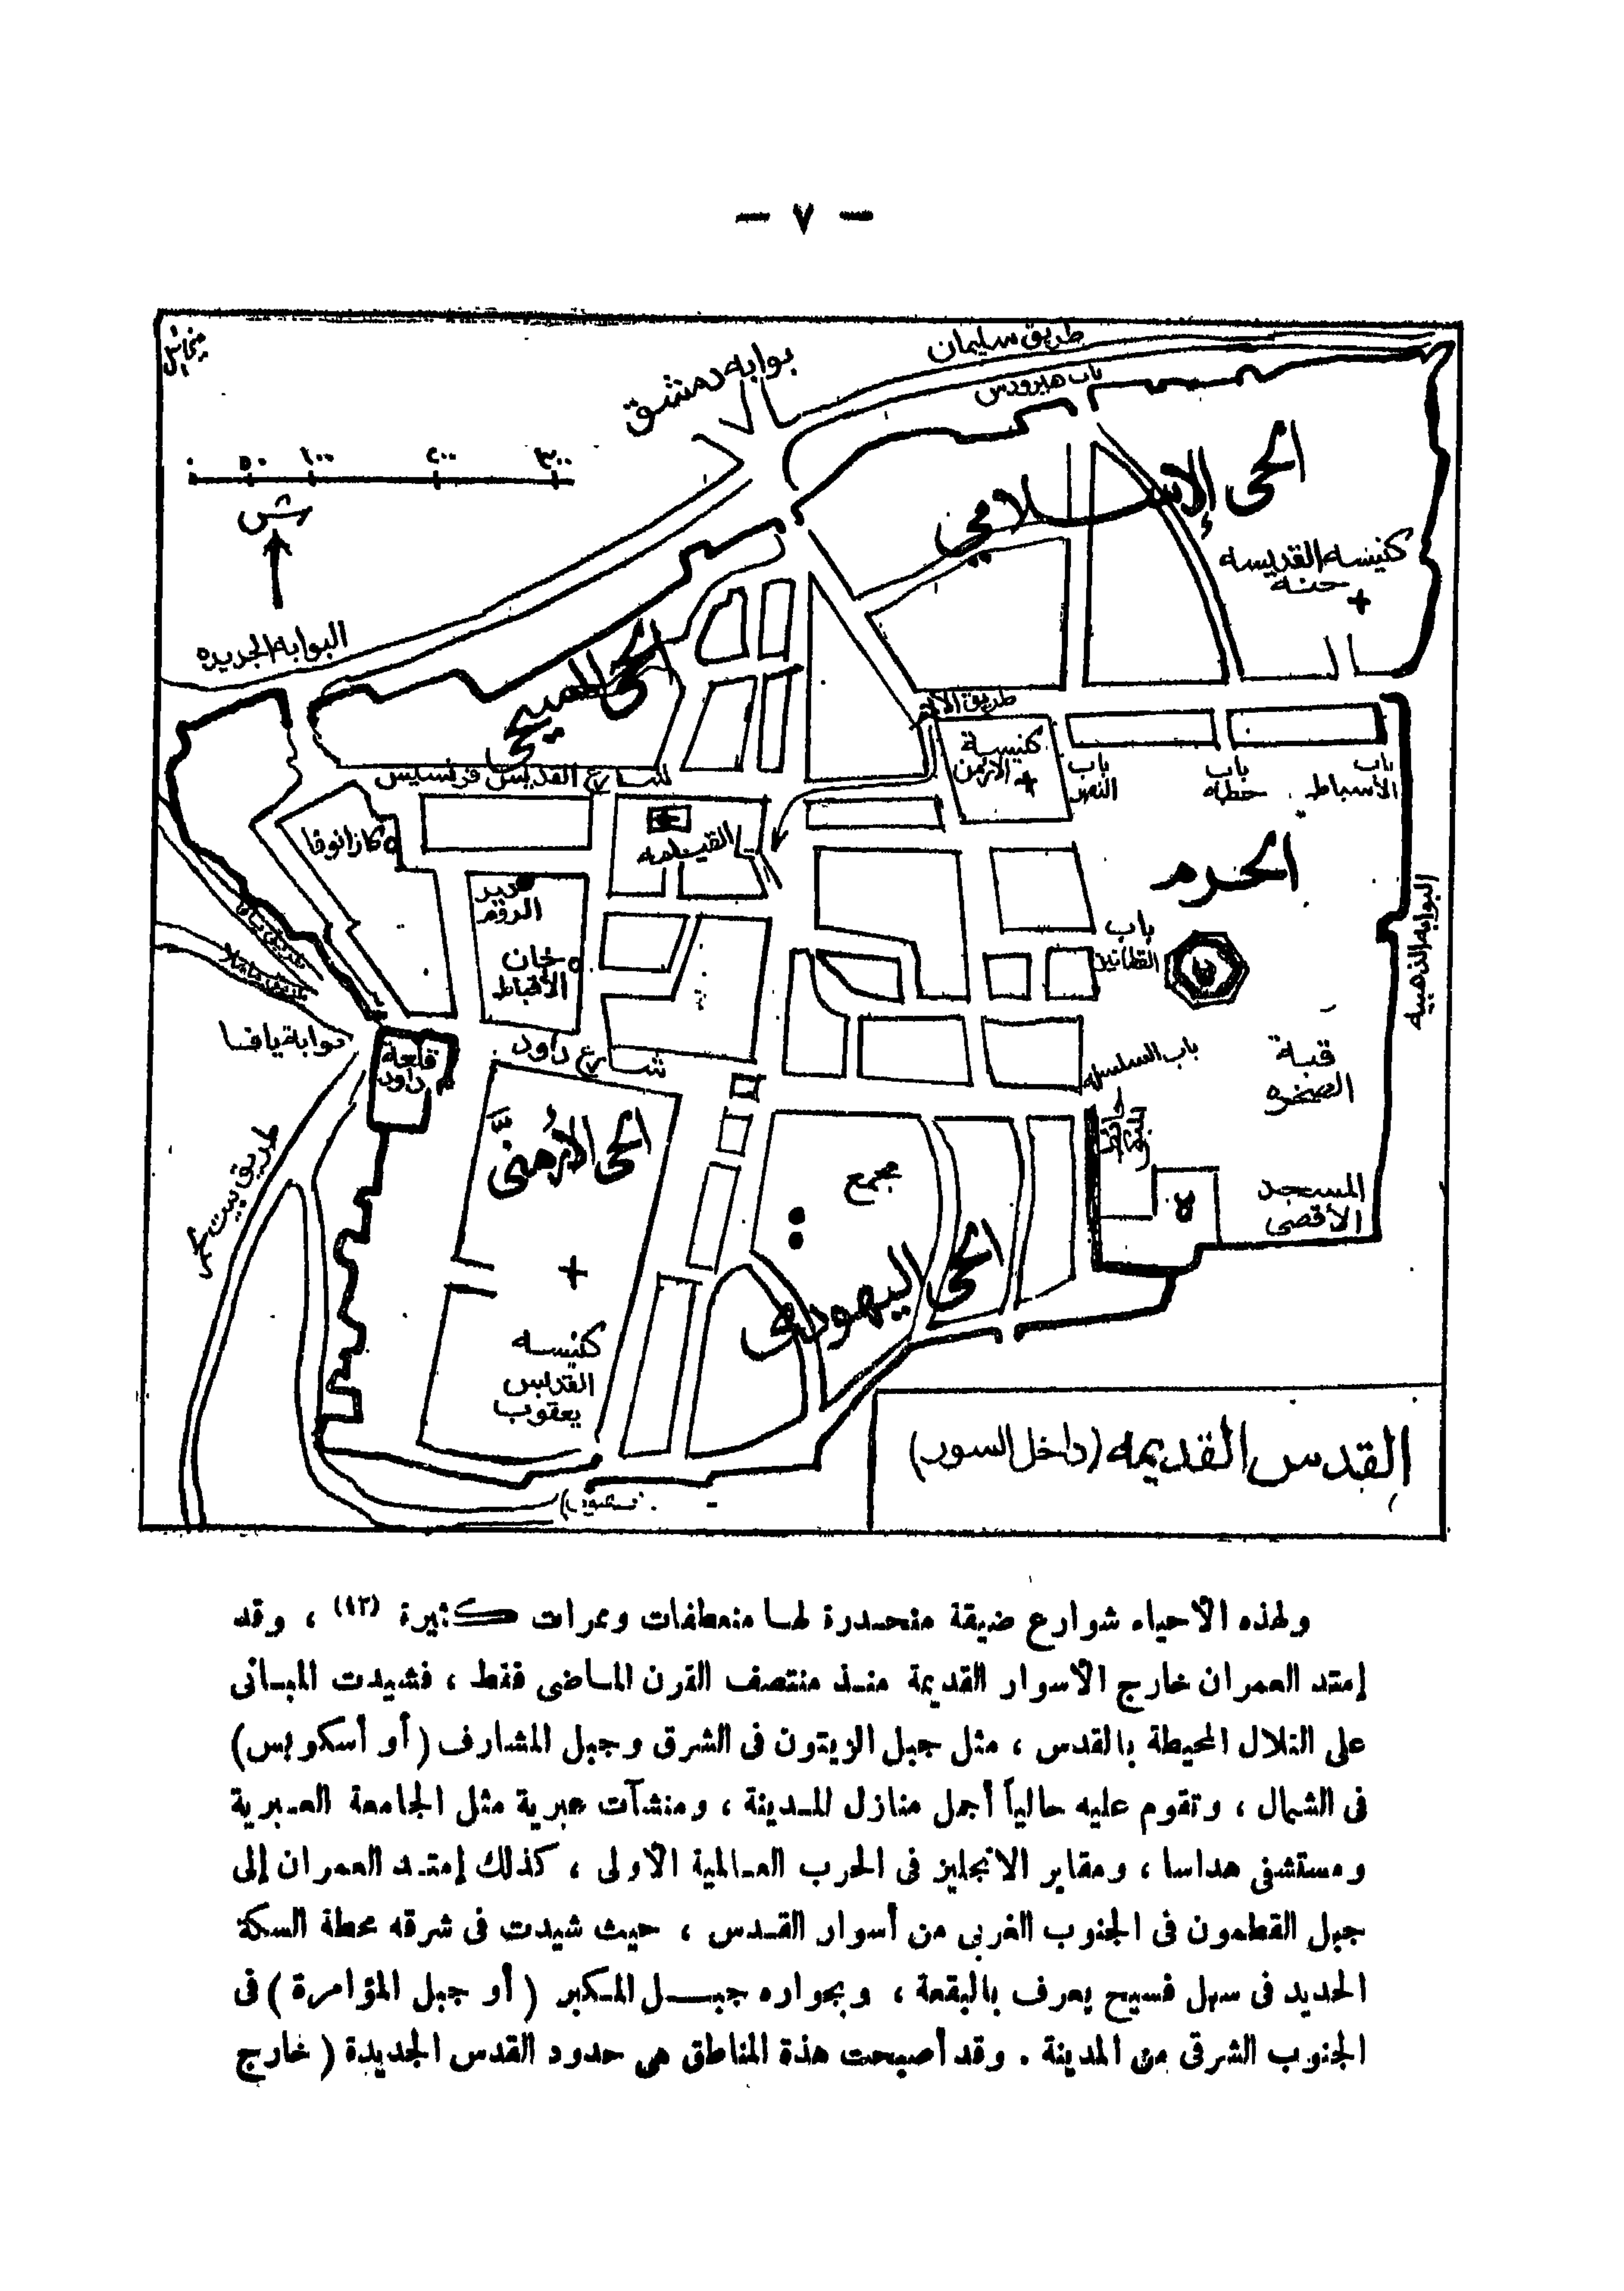 — ٧ —
ميخائيل
طريق سليمان
بوابة دمشق
باب هيرودس
٠ ٥٠ ١٠٠ ٢٠٠ ٣٠٠
ش
الحى الإسلامي
كنيسه القديسه
حنه
البوابه الجديده
الحى المسيحى
طريق الالام
كنيسة
الارمن
باب
حطه
باب
الأسباط
شارع القديس فرنسيس
كازانوفا
القيامه
الحرم
دير
الروم
باب
القطانين
البوابه الذهبيه
خان
الأقباط
طريق يافا
بوابة يافا
قلعة
داود
شارع داود
باب السلسله
قبة
الصخره
الحى الأرمنى
طريق بيت لحم
مجمع
المسجد
الأقصى
الحى اليهودى
كنيسه
القديس
يعقوب
القدس القديمه (داخل السور)
ولهذه الأحياء شوارع ضيقة منحدرة لها منعطفات وممرات كثيرة (١٢) ، وقد
إمتد العمران خارج الأسوار القديمة منذ منتصف القرن الماضى فقط ، فشيدت المبانى
على التلال المحيطة بالقدس ، مثل جبل الزيتون فى الشرق وجبل المشارف (أو أسكوبس)
فى الشمال ، وتقوم عليه حالياً أجمل منازل المدينة ، ومنشآت عبرية مثل الجامعة العبرية
ومستشفى هداسا ، ومقابر الانجليز فى الحرب العالمية الأولى ، كذلك إمتد العمران إلى
جبل القطمون فى الجنوب الغربى من أسوار القدس ، حيث شيدت فى شرقه محطة السكة
الحديد فى سهل فسيح يعرف بالبقعة ، وبجواره جبل المكبر (أو جبل المؤامرة) فى
الجنوب الشرقى من المدينة . وقد أصبحت هذة المناطق هى حدود القدس الجديدة (خارج